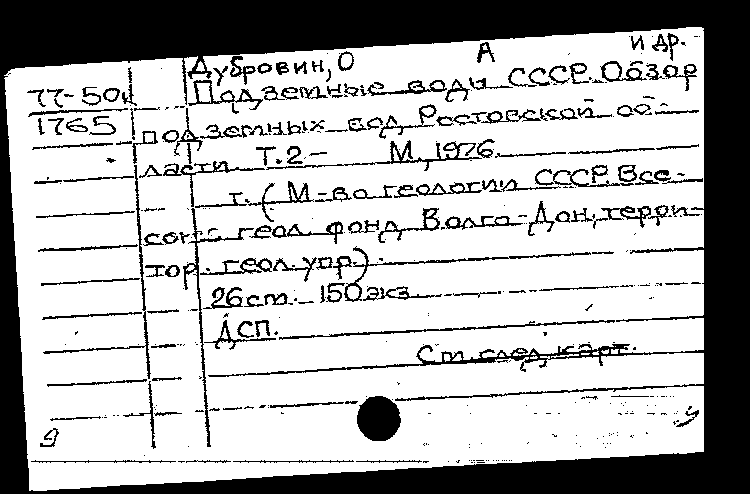 Дубровин, О А и др.
77-50к Подземные воды СССР. Обзор
1765 подземных вод Ростовской об-
ласти Т.2- М., 1976.
т. (М-во геологии СССР. Все-
союз геол. фонд Волго-Дон. терри-
тор. геол. упр.).
26 см. 150 экз
ДСП.
См. след. карт.
9